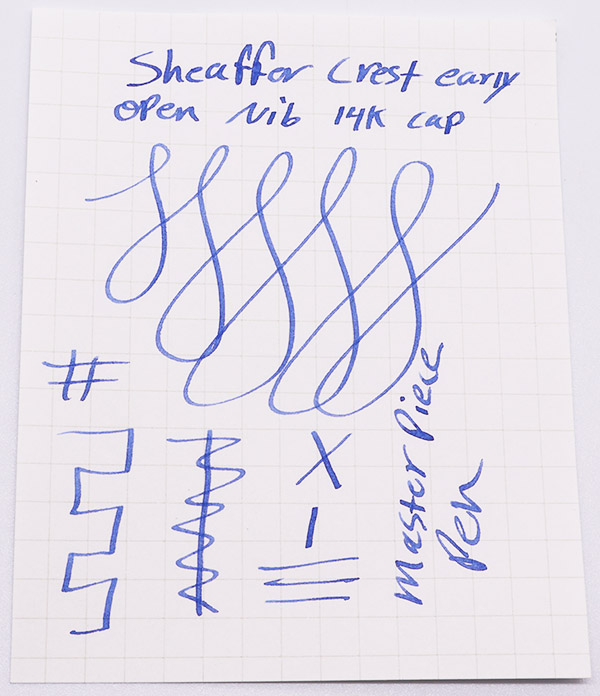 Sheaffor Crest early
open Nib 14K cap
#
X
Master Piece
Pen